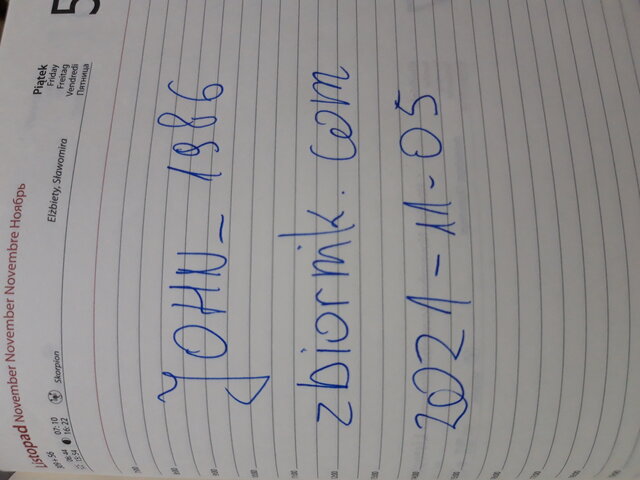 Listopad November November Novembre Ноябрь
5
Piątek
Friday
Freitag
Vendredi
Пятница
Elżbiety, Sławomira
Skorpion
07:10
16:22
JOHN_1986
zbiornik.com
2021-11-05